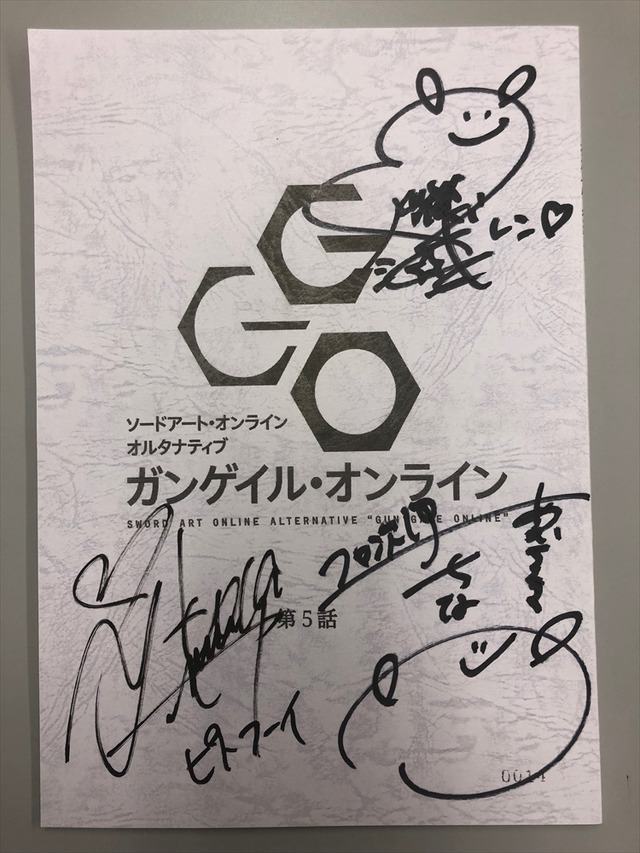 レン♡
GGO
ソードアート・オンライン
オルタナティブ
ガンゲイル・オンライン
SWORD ART ONLINE ALTERNATIVE "GUN GALE ONLINE"
フカ次郎
第5話
ピトフーイ
0014